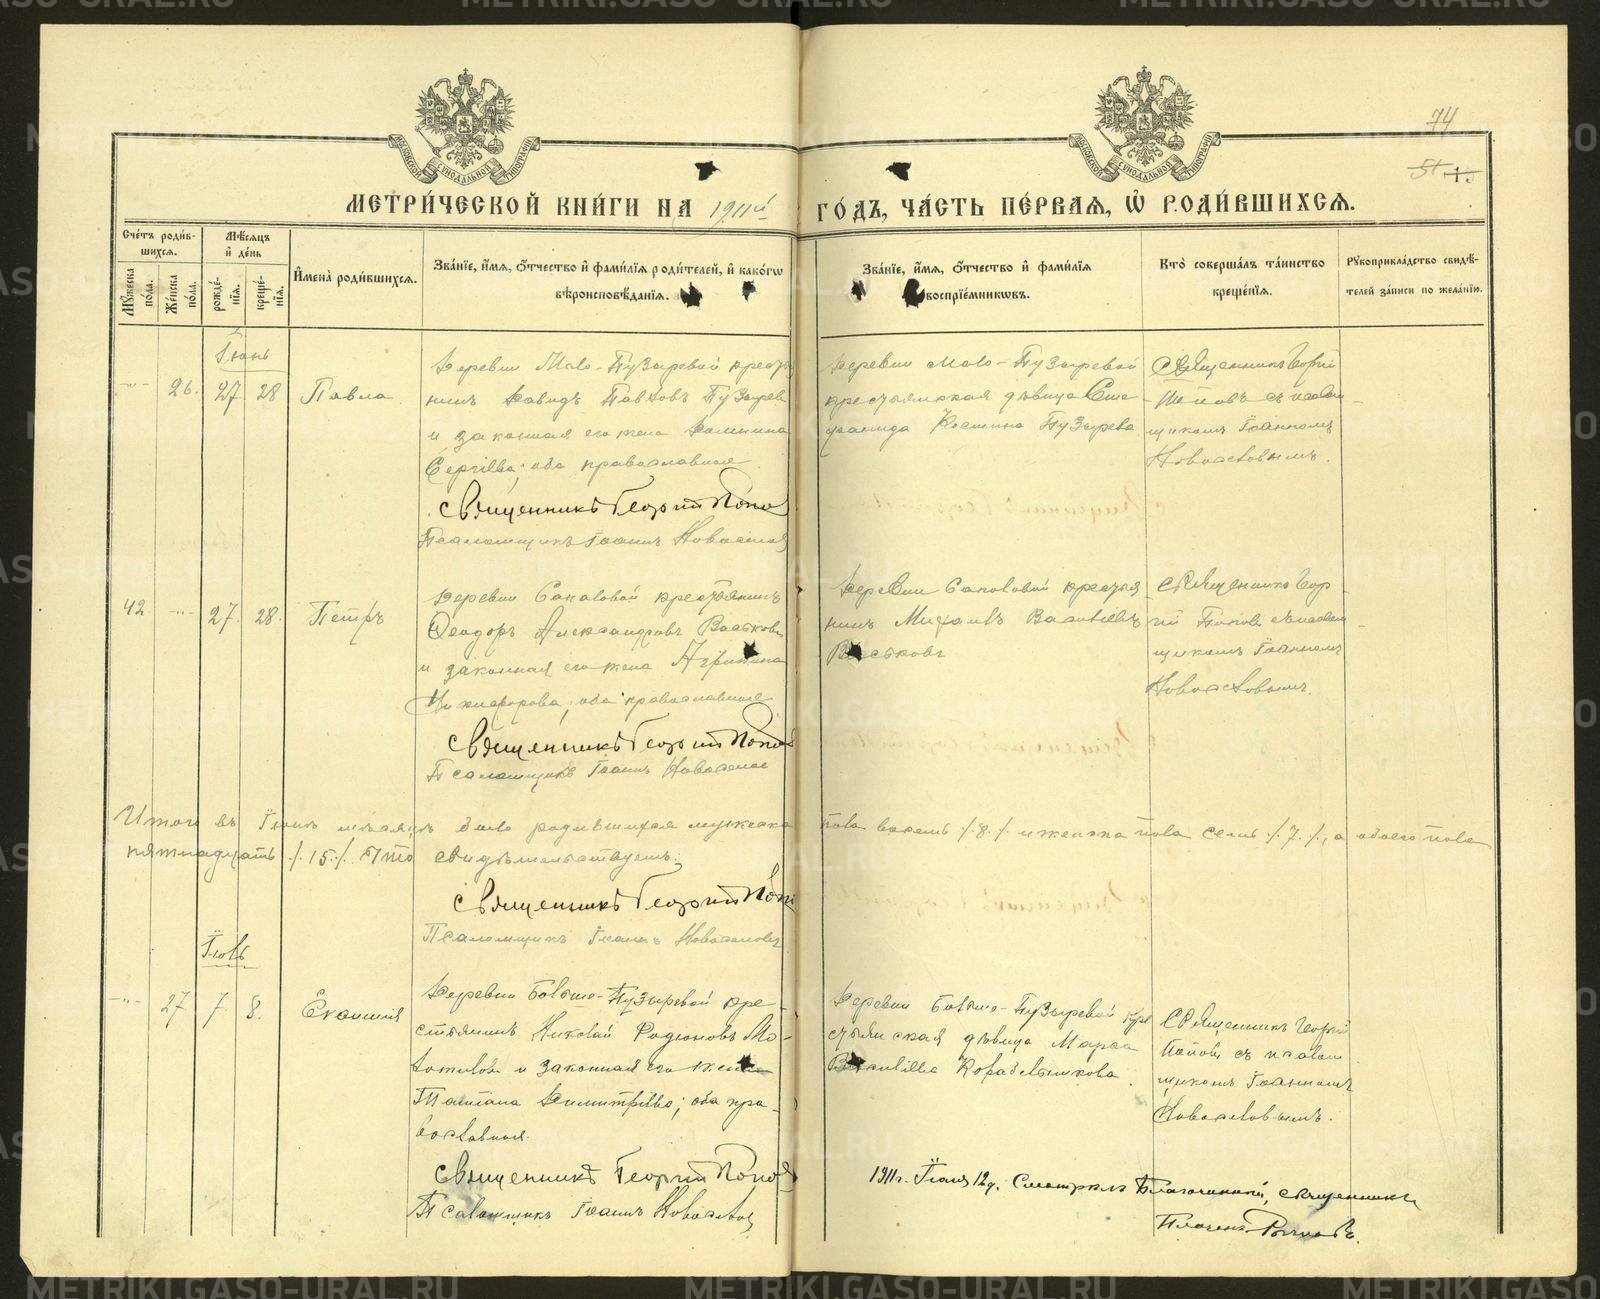 74
51
МЕТРИ́ЧЕСКОЙ КНИ́ГИ НА 1911й ГО́ДЪ, ЧА́СТЬ ПЕ́РВАЯ, Ѿ РОДИ́ВШИХСЯ.
Сче́тъ роди́в-шихся.
Му́жеска по́ла.
Же́нска по́ла.
Мѣ́сяцъ и де́нь
рожде́-нїя.
креще́-нїя.
И́мена роди́вшихся.
Зва́нїе, и́мя, о́тчество и фами́лїя роди́телей, и како́гѡ
вѣроисповѣ́данїя.
Зва́нїе, и́мя, о́тчество и фами́лїя
воспрїе́мниковъ.
Кто̀ соверша́лъ та́инство
креще́нїя.
Рукоприкла́дство свидѣ́-
телей за́писи по жела́нїю.
Іюнь
26. 27 28 Павла
Деревни Мало-Пузыревой кресть
нинъ Давидъ Павловъ Пузырев
и законная его жена Домнина
Сергіева; оба православные
Священникъ Георгій Попо
Псаломщикъ Іоаннъ Новоселов
Деревни Мало-Пузыревой
крестьянская дѣвица
Пузырева
Священникъ Георгій
Поповъ съ псалом-
щикомъ Іоанномъ
Новоселовымъ.
42 27. 28. Петръ
Деревни Сакаловой крестьянинъ
Ѳеодоръ Александровъ Васьков
и законная его жена Агрипина
Никифорова; оба православные
Священникъ Георгій Попов
Псаломщикъ Іоаннъ Новоселов
Деревни Сакаловой крестья
нинъ Михаилъ Васильевъ
Васьковъ
Священникъ Геор-
гій Поповъ съ псалом-
щикомъ Іоанномъ
Новоселовымъ.
Итого въ Іюнѣ мѣсяцѣ было родившихся мужеска пола восемь /.8./ и женска пола семь /.7./, а обоего пола
пятнадцать /.15./. Что свидѣтельствуемъ:
Священникъ Георгій Попо
Псаломщикъ Іоаннъ Новоселовъ
Іюль
27 7 8.
Деревни Больше-Пузыревой кре-
стьянинъ Николай Родіоновъ Мо-
и законная его жена
Татіана Димитріева; оба пра-
вославные.
Священникъ Георгій Попов
Псаломщикъ Іоаннъ Новоселов
Деревни Больше-Пузыревой кре
стьянская дѣвица Марѳа
Васильева Корабельникова.
Священникъ Георгій
Поповъ съ псалом
щикомъ Іоанномъ
Новоселовымъ.
1911г. Іюля 12 д. Смотрѣлъ Благочинный, священникъ
METRIKI.GASO-URAL.RU